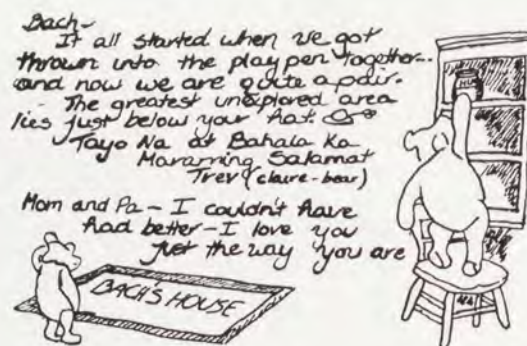 Bach-
It all started when we got
thrown into the play pen together...
and now we are quite a pair.
- The greatest unexplored area
lies just below your hat.
Tayo Na at Bahala Ka
Maraming Salamat
Trev (claire-bear)
Mom and Pa - I couldn't have
had better - I love you
just the way you are
BACH'S HOUSE